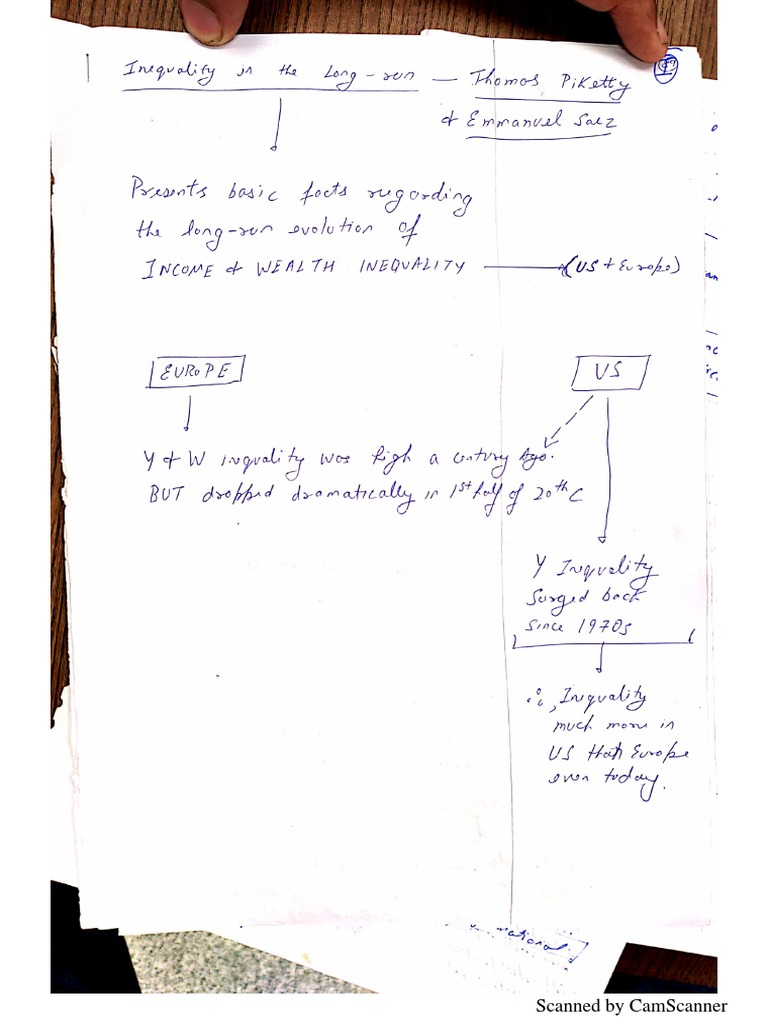 Inequality in the Long-run — Thomas Piketty
& Emmanuel Saez
Presents basic facts regarding
the long-run evolution of
INCOME & WEALTH INEQUALITY — (US + Europe)
EUROPE
US
Y & W inequality was high a century ago.
BUT dropped dramatically in 1st half of 20th C
Y Inequality
Surged back
since 1970s
∴, Inequality
much more in
US than Europe
even today.
national
Scanned by CamScanner